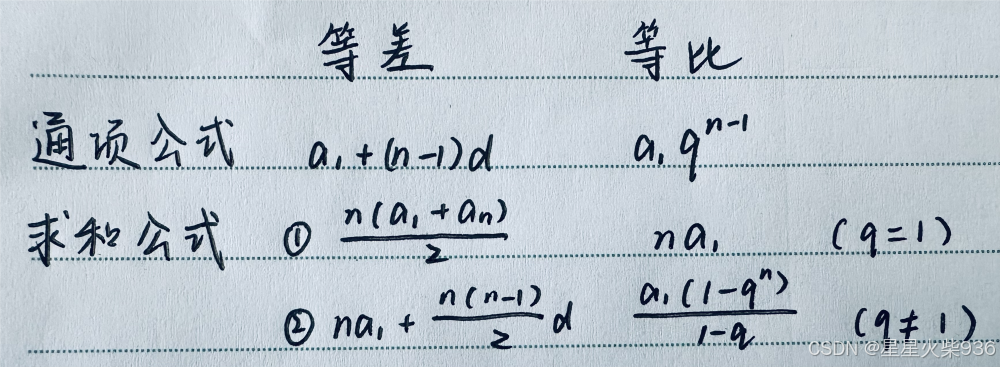 等差 等比
通项公式 a₁+(n-1)d a₁qⁿ⁻¹
求和公式 ① n(a₁+aₙ)/2 na₁ (q=1)
② na₁+n(n-1)/2 d a₁(1-qⁿ)/1-q (q≠1)
CSDN @星星火柴936